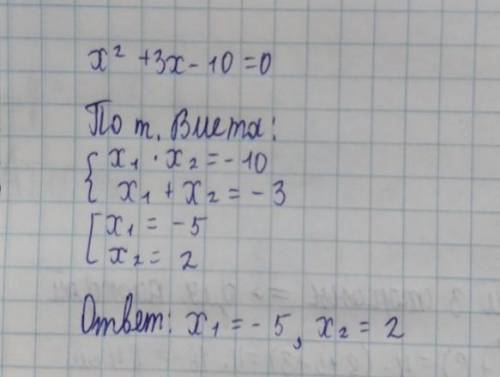 x² + 3x - 10 = 0
По т. Виета:
{ x₁ · x₂ = - 10
x₁ + x₂ = - 3
[ x₁ = - 5
x₂ = 2
Ответ: x₁ = - 5, x₂ = 2